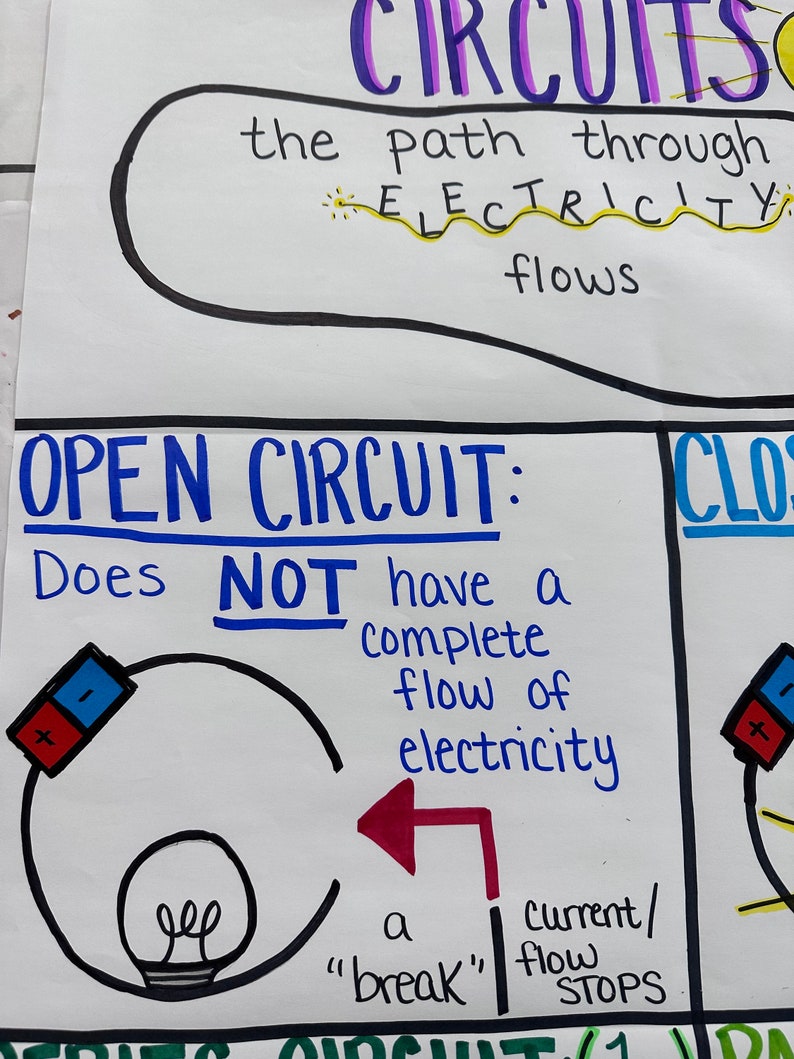 CIRCUITS
the path through
ELECTRICITY
flows
OPEN CIRCUIT:
Does NOT have a
complete
flow of
electricity
-
+
a
"break"
current/
flow
STOPS
CLOS
-
+
CIRCUIT (1